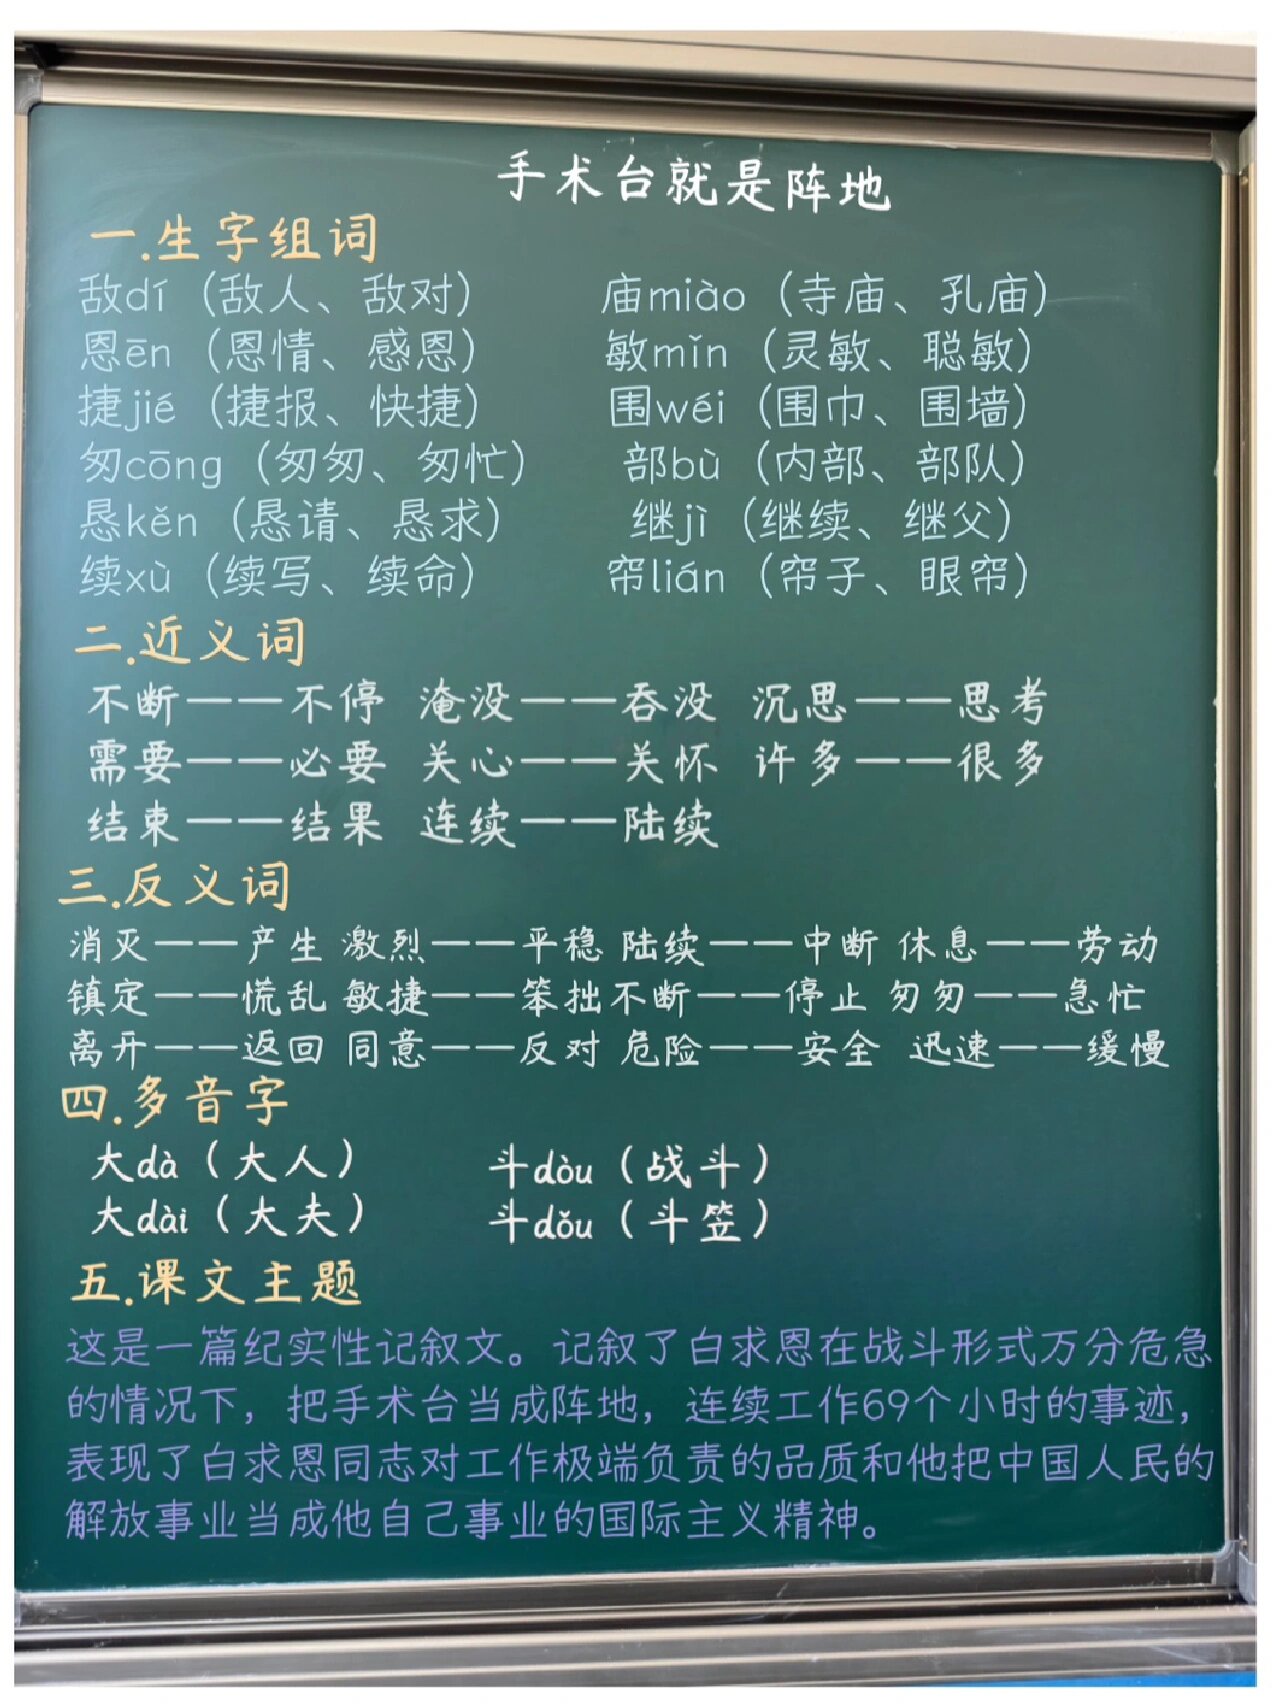 手术台就是阵地
一.生字组词
敌dí（敌人、敌对） 庙miào（寺庙、孔庙）
恩ēn（恩情、感恩） 敏mǐn（灵敏、聪敏）
捷jié（捷报、快捷） 围wéi（围巾、围墙）
匆cōng（匆匆、匆忙） 部bù（内部、部队）
恳kěn（恳请、恳求） 继jì（继续、继父）
续xù（续写、续命） 帘lián（帘子、眼帘）
二.近义词
不断——不停 淹没——吞没 沉思——思考
需要——必要 关心——关怀 许多——很多
结束——结果 连续——陆续
三.反义词
消灭——产生 激烈——平稳 陆续——中断 休息——劳动
镇定——慌乱 敏捷——笨拙 不断——停止 匆匆——急忙
离开——返回 同意——反对 危险——安全 迅速——缓慢
四.多音字
大dà（大人） 斗dòu（战斗）
大dài（大夫） 斗dǒu（斗笠）
五.课文主题
这是一篇纪实性记叙文。记叙了白求恩在战斗形式万分危急
的情况下，把手术台当成阵地，连续工作69个小时的事迹，
表现了白求恩同志对工作极端负责的品质和他把中国人民的
解放事业当成他自己事业的国际主义精神。